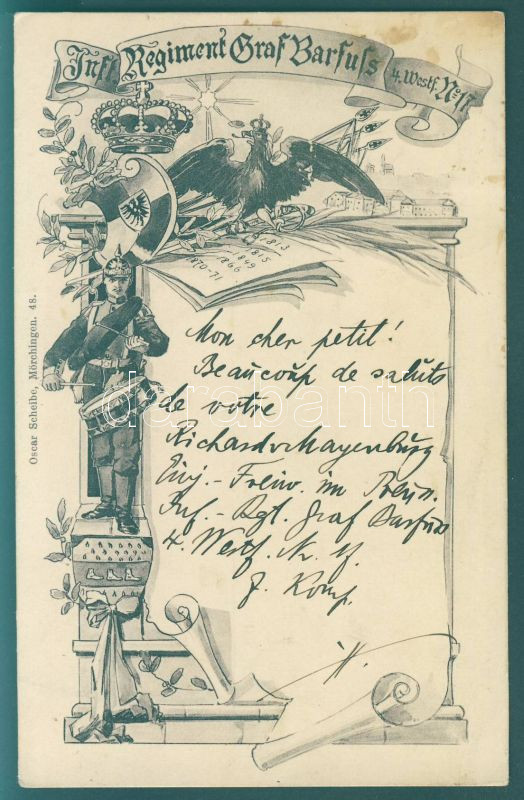 Inft. Regiment Graf Barfuss 4. Westf. No 17
1813
1815
1849
1866
1870-71
Mon cher petit!
Beaucoup de saluts
de votre
Richard v Mayenburg
Einj.-Freiw. im Preus.
Inf.-Rgt. Graf Barfuss
4. Westf. N. 17.
7. Komp.
Oscar Scheibe, Mörchingen. 48.
darabanth